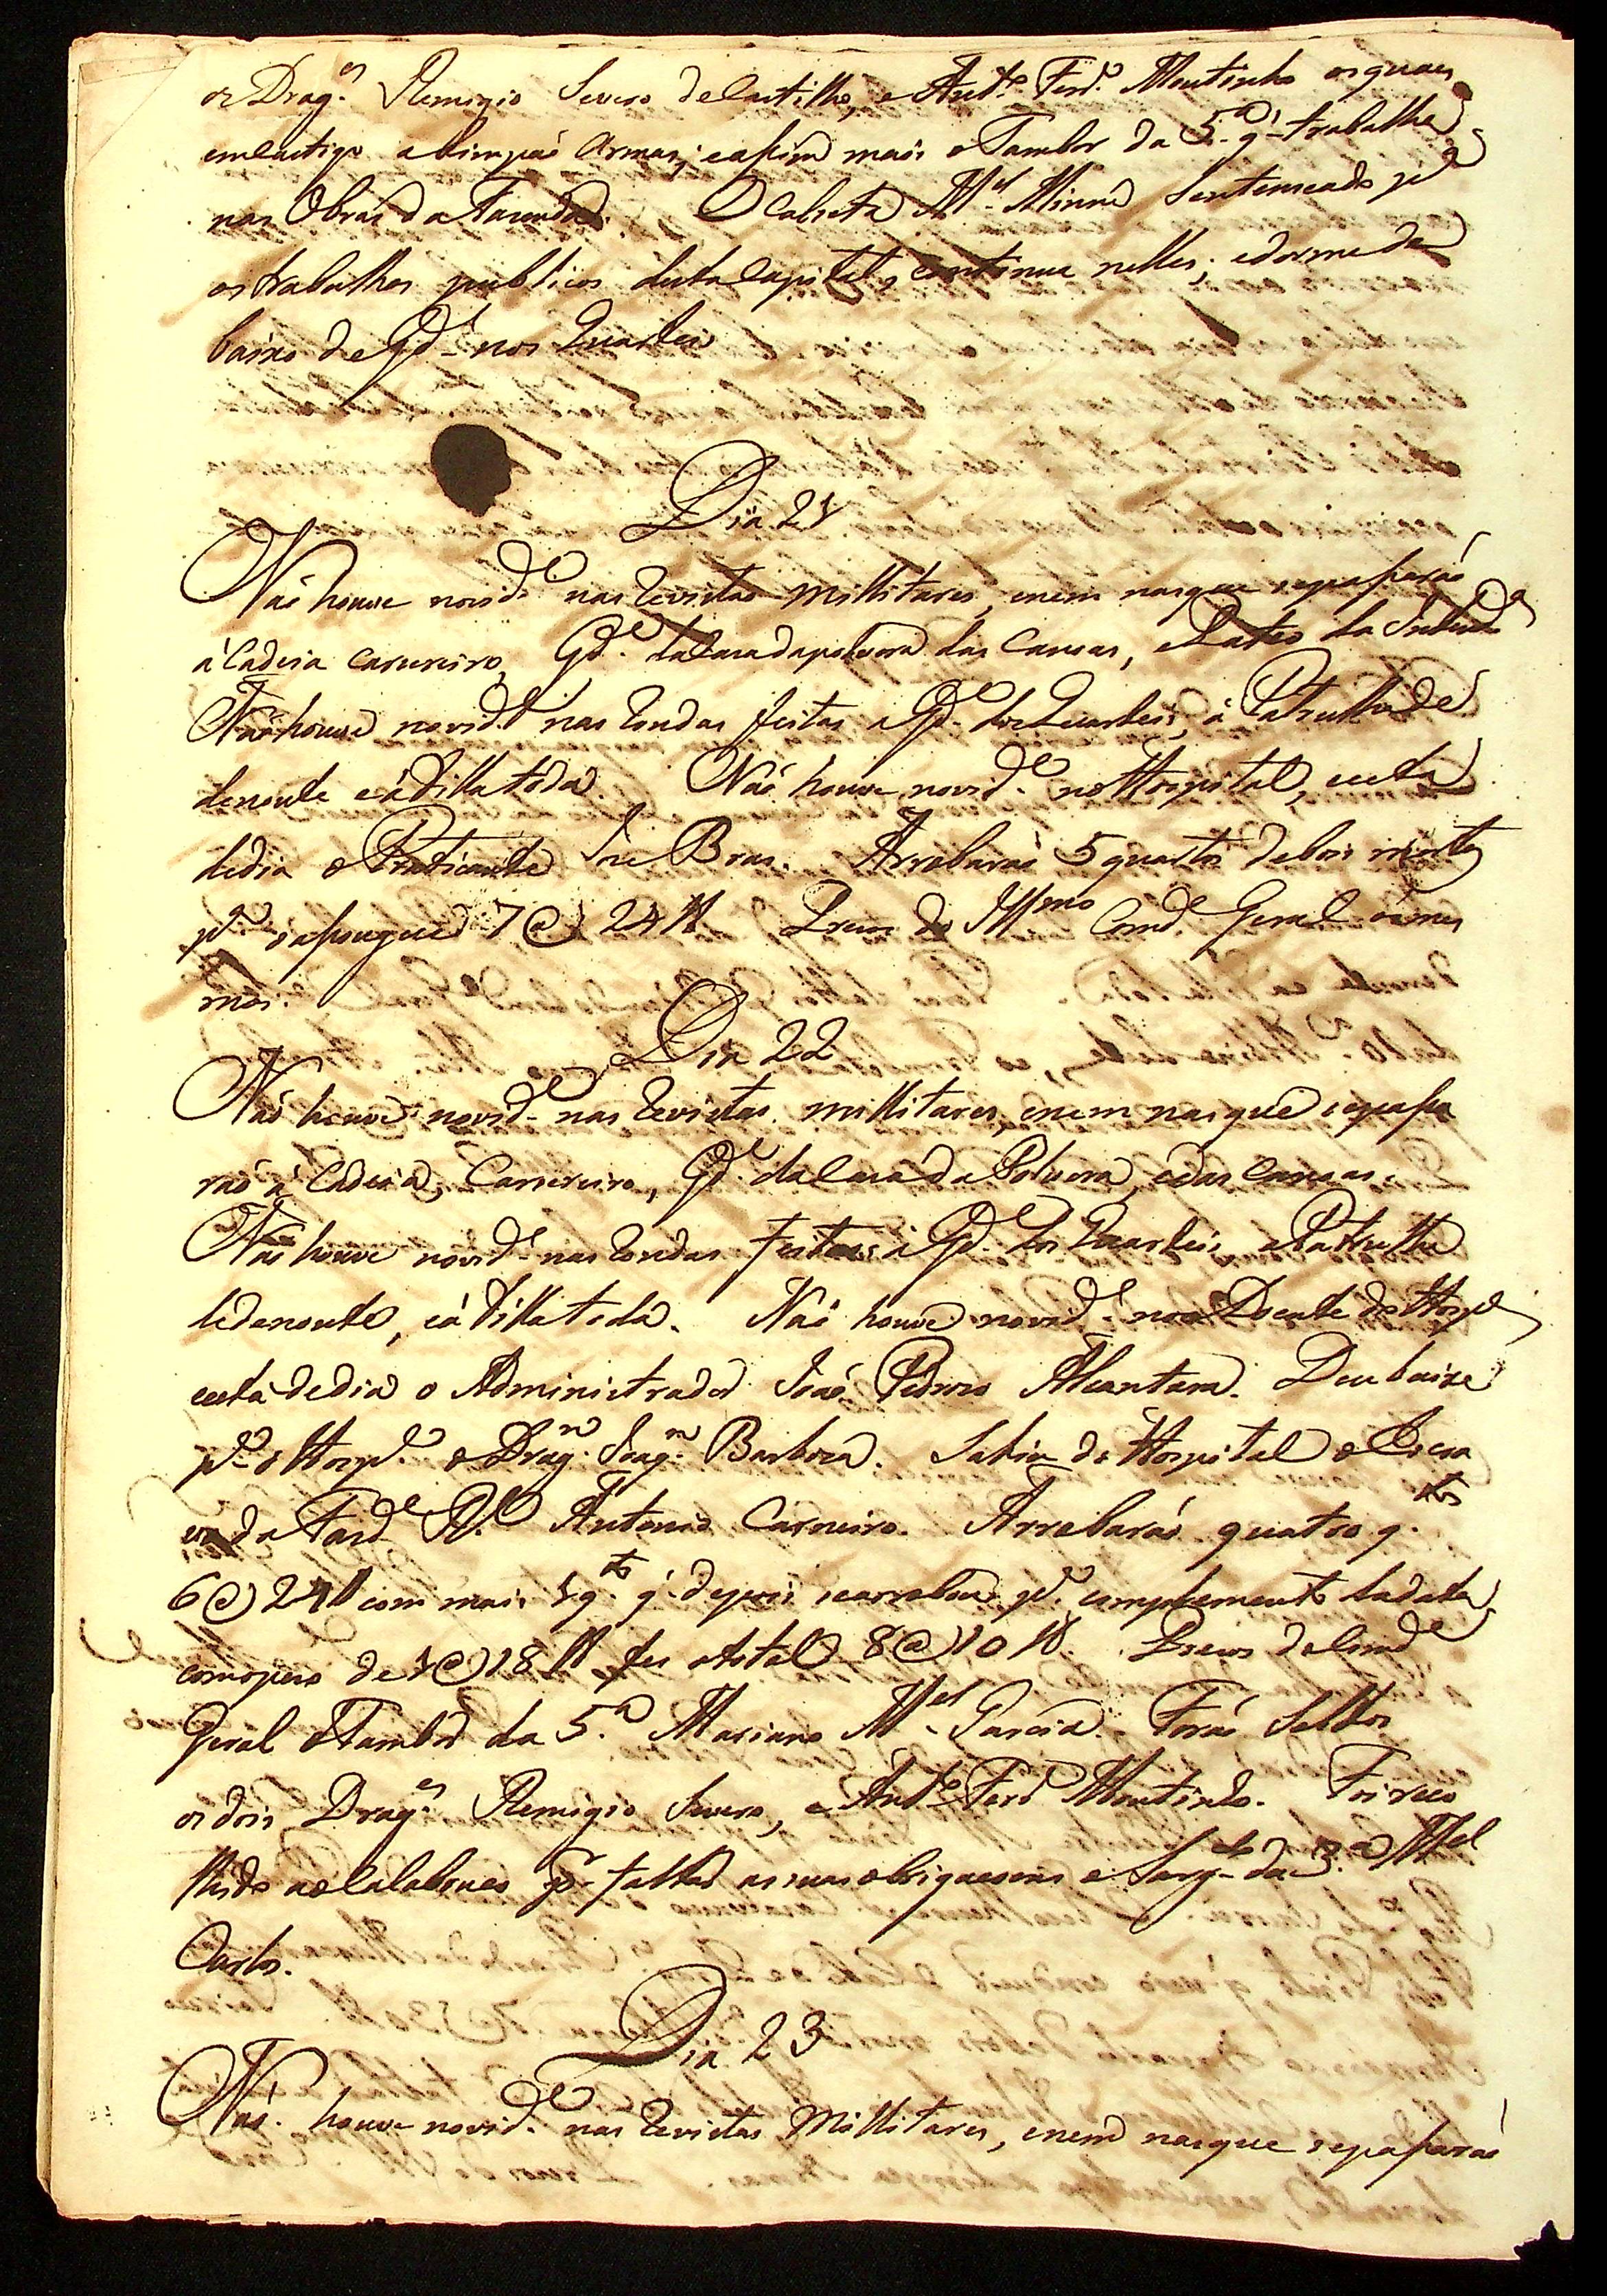 os Drag.es Remigio Severo de Castilho, e Ant.o Ferd.o Moutinho os quaes
em Castigo alimpaõ Armas; e assim mais o Tambor da 5.a q' trabalha
nas Obras da Fazenda. O Calseta M.el Sentenceado p.a
os trabalhos publicos desta Capital, continua nelles; e dorme de
baixo de G.da nos Quarteis
Dia 21
Naõ houve novid.e nas Revistas millitares, e nem nas que se passaraõ
á Cadeia Carcereiro, G.da da Casa da polvora das Canoas, e Pateo da Intend.a
Naõ houve novid.e nas Rondas feitas a G.da dos Quarteis, á Patrulha de
denoute e á Villa toda. Naõ houve novid.e no Hospital, e está
de dia o Praticante Jozé Bras. Arrobaraõ 5 quartos de bois mortos
p.a o assougue 7@ 24 lb Prezos do Ill.mo Com.de Geral os mes
mos.
Dia 22
Naõ houve novid.e nas Revistas millitares, e nem nas que se passa
raõ á Cadeia, Carcereiro, G.da da Casa da Polvora, e das Canoas.
Naõ houve novid.e nas Rondas feitas á G.da dos Quarteis, a Patrulha
de denoute, e á Villa toda. Naõ houve novid.e nos Doente do Hosp.al
e está de dia o Administrador Joaõ Pedrozo Alcantara. Deu baixa
p.a o Hosp.al o Drag.m Joaq.m Barboza. Sahio do Hospital o Escra
vo da Fazd.a R.l Antonio Carneiro. Arrobaraõ quatro q.tos
6@ 24 lb com mais 1 q.to q' depois se arrobou p.a complemento da data
com o pezo de 1@ 18 lb fez o total 8@ 10 lb. Prezos do Comd.e
Geral o Tambor da 5.a Mariano M.el Garcia. Foraõ Soltos
os dois Drag.es Remigio Severo, e Ant.o Ferd.o Moutinho. Foi reco
lhido ao Calabouço p.r faltar as suas obrigaçoens o Sarg.to da 3.a M.el
Carlos.
Dia 23
Naõ houve novid.e nas Revistas Millitares, e nem nas que se passaraõ